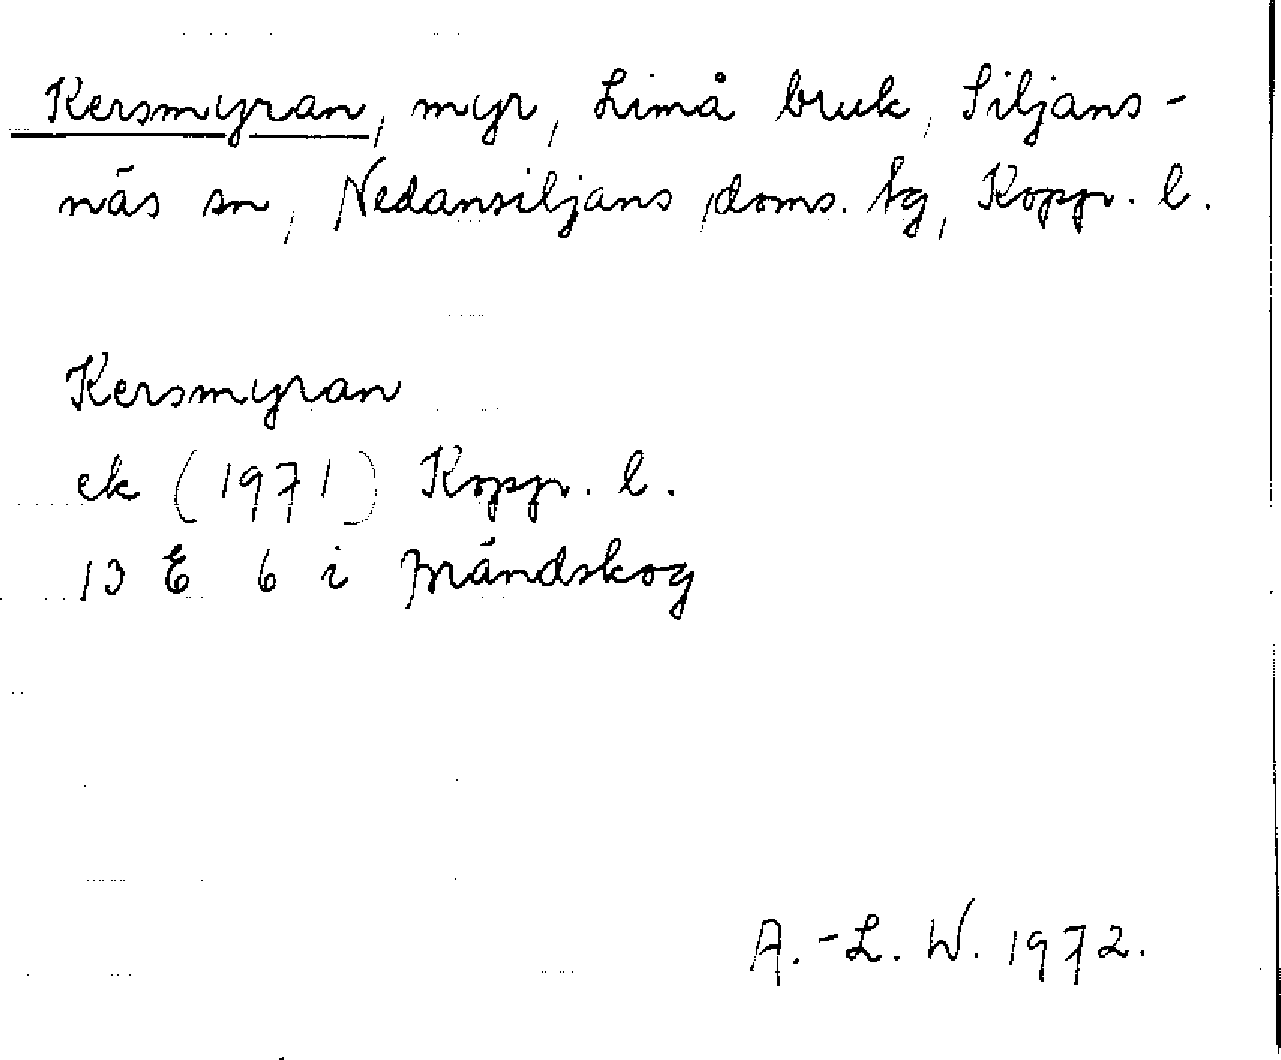 Kersmyran, myr, Limå bruk, Siljans-
näs sn, Nedansiljans doms. tg, Kopp. l.
Kersmyran
ek (1971) Kopp. l.
13 E 6 i Brändskog
A.-L. W. 1972.